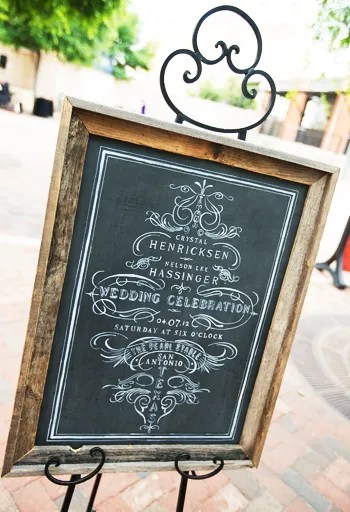 CRYSTAL
HENRICKSEN
NELSON LEE
HASSINGER
WEDDING CELEBRATION
04.07.12
SATURDAY AT SIX O'CLOCK
THE PEARL STABLE
SAN
ANTONIO
TEXAS